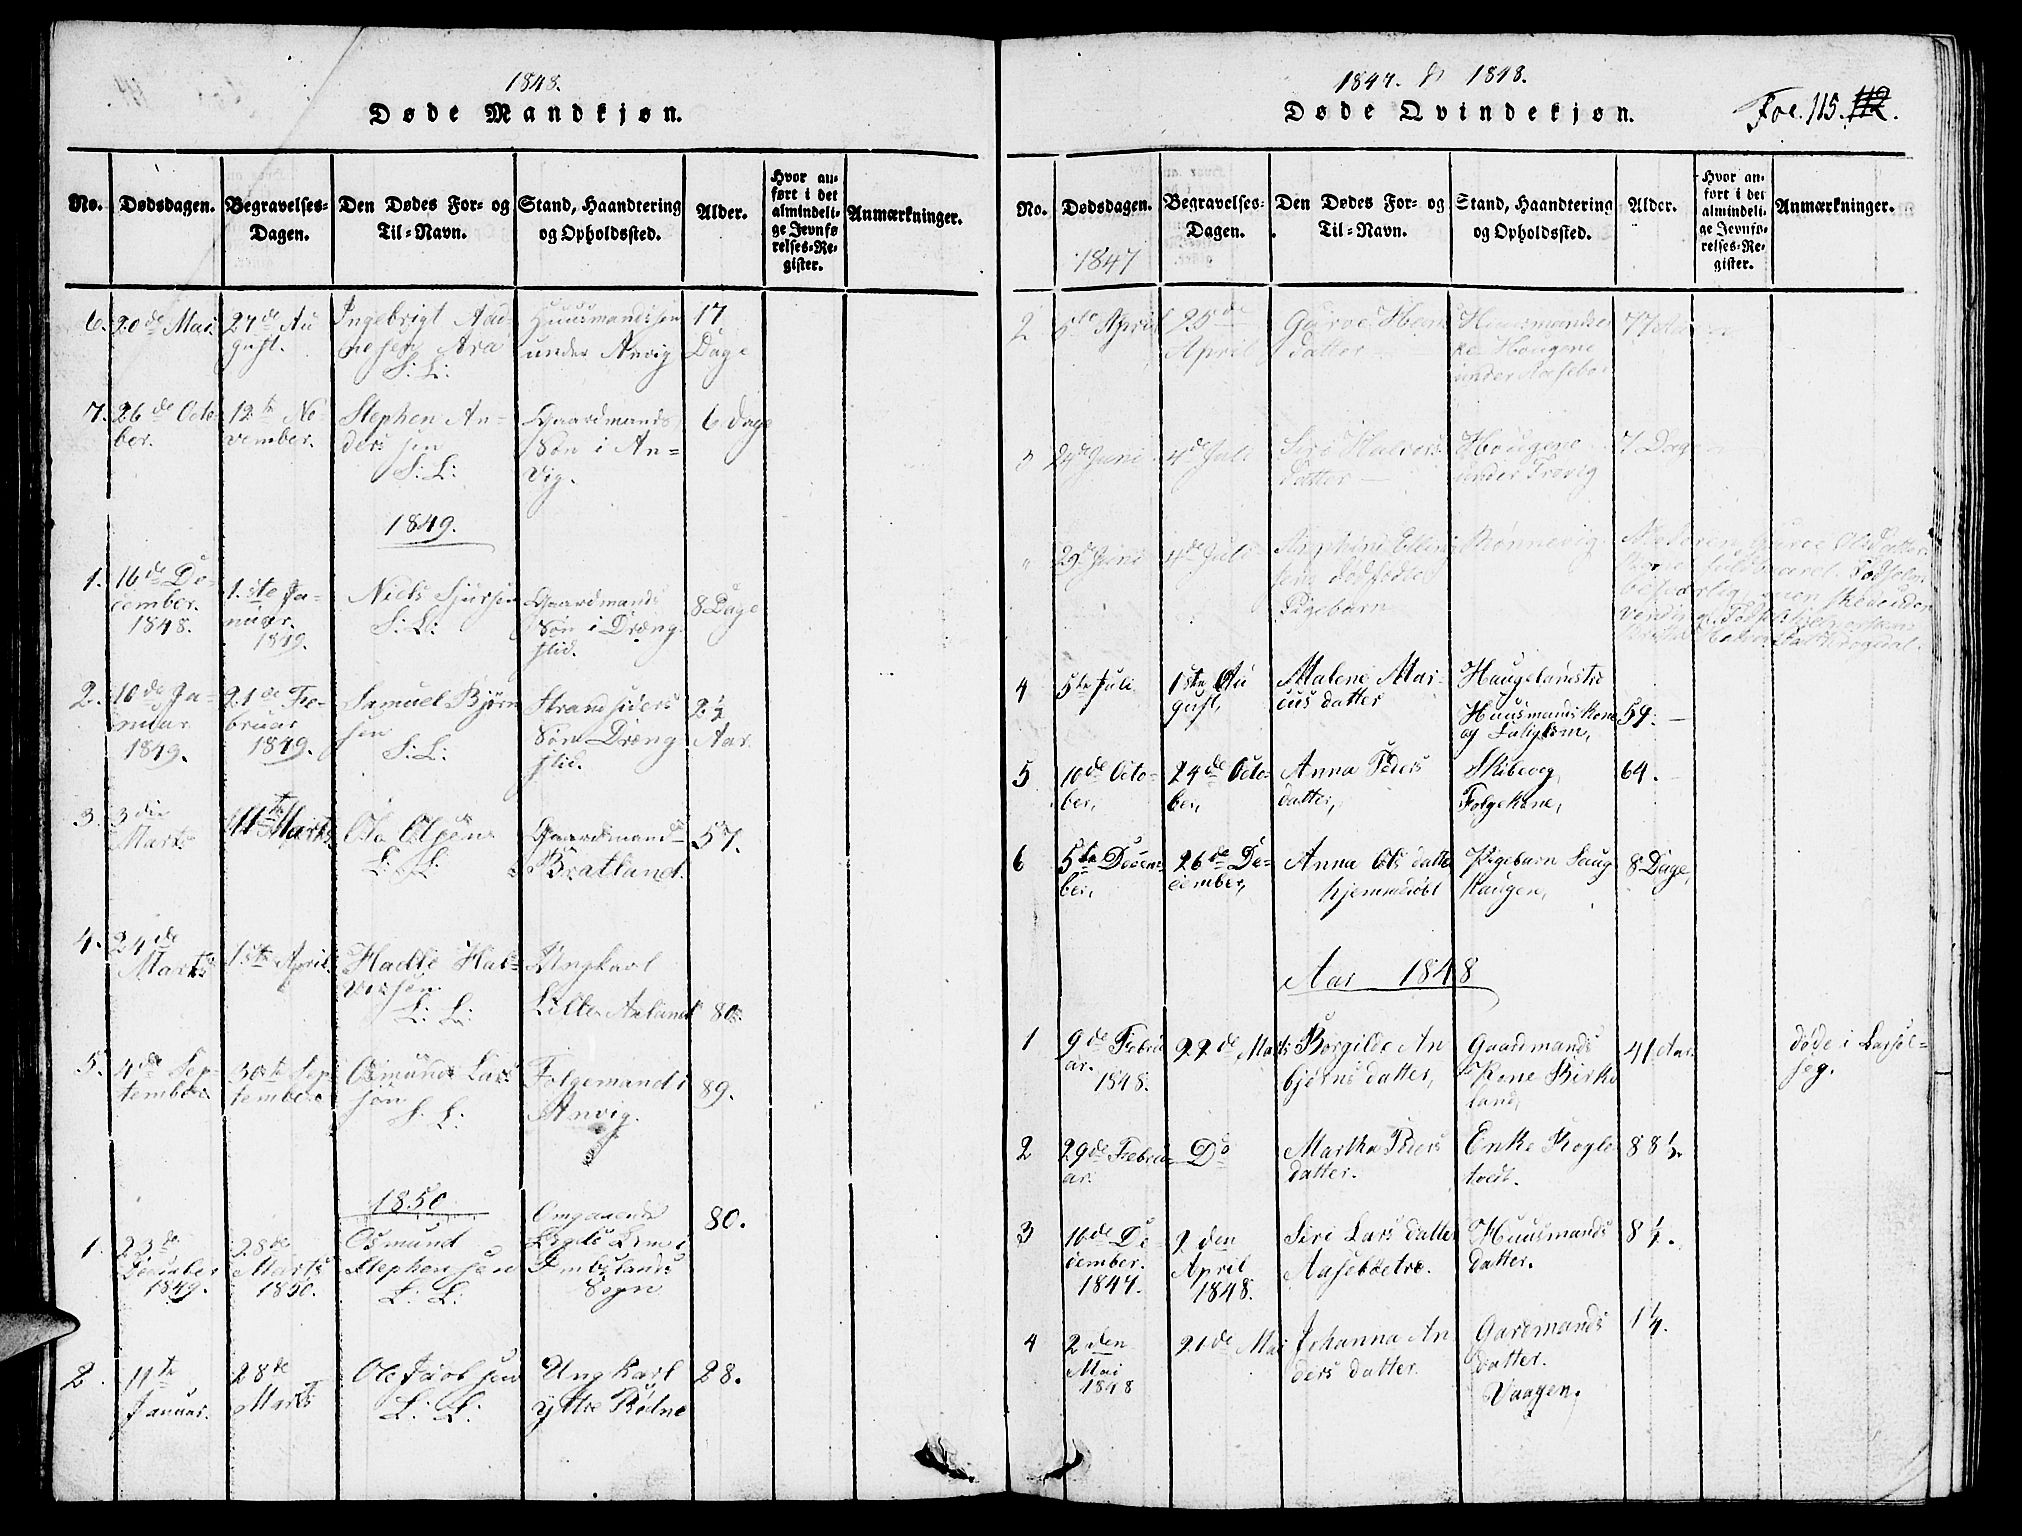 1848.
Døde Mandkjøn.
No.
Dødsdagen.
Begravelses-
Dagen.
Den Dødes For- og
Til-Navn.
Stand, Haandtering
og Opholdssted.
Alder.
Hvor an-
ført i det
almindeli-
ge Jevnfø-
relses-Re-
gister.
Anmærkninger.
6.
20de Mai
27de Au
gust.
Ingebrigt Aad-
nesen Ara
S: L:
Huusmandssøn
under Anvig
17
Dage
7.
26de Octo-
ber.
12te No
vember.
Stephen An-
ders
sen
S: L:
Gaardmands
Søn i An=
vig.
6 Dage
1849.
1.
16de De-
cember.
1848.
1ste Ja-
nuar.
1849.
Niels Sjursen
S: L:
Gaardmands
Søn i Dræng-
slid.
8 Dage
2.
10de Ja-
nuar
1849.
21de Fe-
bruar
1849.
Samuel Bjørn
sen
S: L:
Strandsiders
Søn Dræng
slid.
2½
Aar
3.
3die
Marts
11te Marts
Ole Olsen
L: L:
Gaardmand
Bratland.
57.
4.
24de
Marts
1ste April
Hadle Hal-
vorsen
L: L:
Ungkarl
Lille Anland
80.
5.
4de Sep-
tember.
30te Sep-
tember
Osmund Lar
sen
S. L:
Folgemand i
Anvig.
89.
1850
1.
23de
December
1849.
28de
Marts
1850.
Osmund
Stephensen
L: L:
Omgaaende
Lægds Lem i
Imslands
Sogn
80.
2.
11te
Januar.
28de
Marts
Ole Jacobsen
L: L:
Ungkarl
yttre Rødne
28.
1847. & 1848.
Døde Qvindekjøn.
Fol. 115. 112.
No.
Dødsdagen.
1847
Begravelses-
Dagen.
Den Dødes For- og
Til-Navn.
Stand, Haandtering
og Opholdssted.
Alder.
Hvor an-
ført i det
almindeli-
ge Jevnfø-
relses-Re-
gister.
Anmærkninger.
2
5te April
25de
April
Gurve
datter
Huusmandsen
ke Hougene
under Aasebø
77 Aar
3
24de Juni
4de Juli
Siri Halvors
datter
Hougene
under Trovig
7 Dage
"
29de Juni
4de Juli
dødfødte
Pigebarn
Rønnevig
Moderen, Gurve Olsdatter
4
5te Juli
1ste Au
gust,
Malene Mar-
cus datter
Haugelandstre
Huusmands Kone
og Faliglem,
59.
5
10de Octo-
ber,
24de Octo-
ber,
Anna Peders
datter,
Skibevog,
Folgekone,
64.
6
5te Decem-
ber,
26de De-
cember,
Anna Ols datter
hjemmedøbt
Pigebarn Saug
Haugen,
8 Dage,
Aar 1848
1
9de Febru
ar.
1848.
22de Marts
Borgilde An
bjørns datter,
Gaardmands
Kone Birke
land,
41 Aar.
døde i Barsel-
seg.
2
29de Febru-
ar.
Do
Martha Peders
datter.
Enke Rogle
tvedt.
88½
3
10de De-
cember.
1847.
2den
April
1848.
Siri Lars datter
Aasebøetre.
Huusmands
datter.
8¼.
4
2den
Mai
1848
21de Mai
Johanna An
ders datter.
Gardmands
datter.
Vaagen.
1¼.